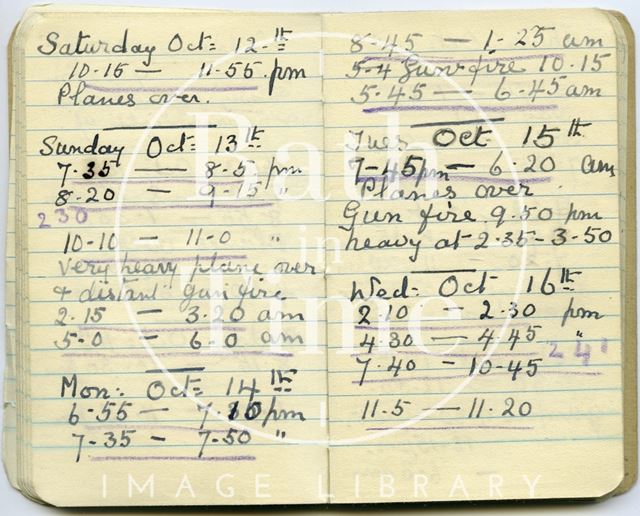 Saturday Oct= 12th
10-15 — 11-55 pm
Planes over.
Sunday Oct= 13th
7.35 — 8-5 pm
8-20 — 9-15 "
230
10-10 — 11-0 "
Very heavy plane over
+ distant gun fire
2-15 — 3-20 am
5-0 — 6-0 am
Mon: Oct= 14th
6-55 — 7.10 pm
7-35 — 7-50 "
8-45 — 1-25 am
5-4 Gun=fire 10-15
5-45 — 6-45 am
Tues Oct= 15th
7-45pm — 6-20 am
Planes over
Gun fire 9.50 pm
heavy at 2.35-3-50
Wed: Oct 16th
2-10 — 2-30 pm
4-30 — 4-45 "
241
7-40 — 10-45
11-5 — 11-20
Bath
in
Time
IMAGE LIBRARY